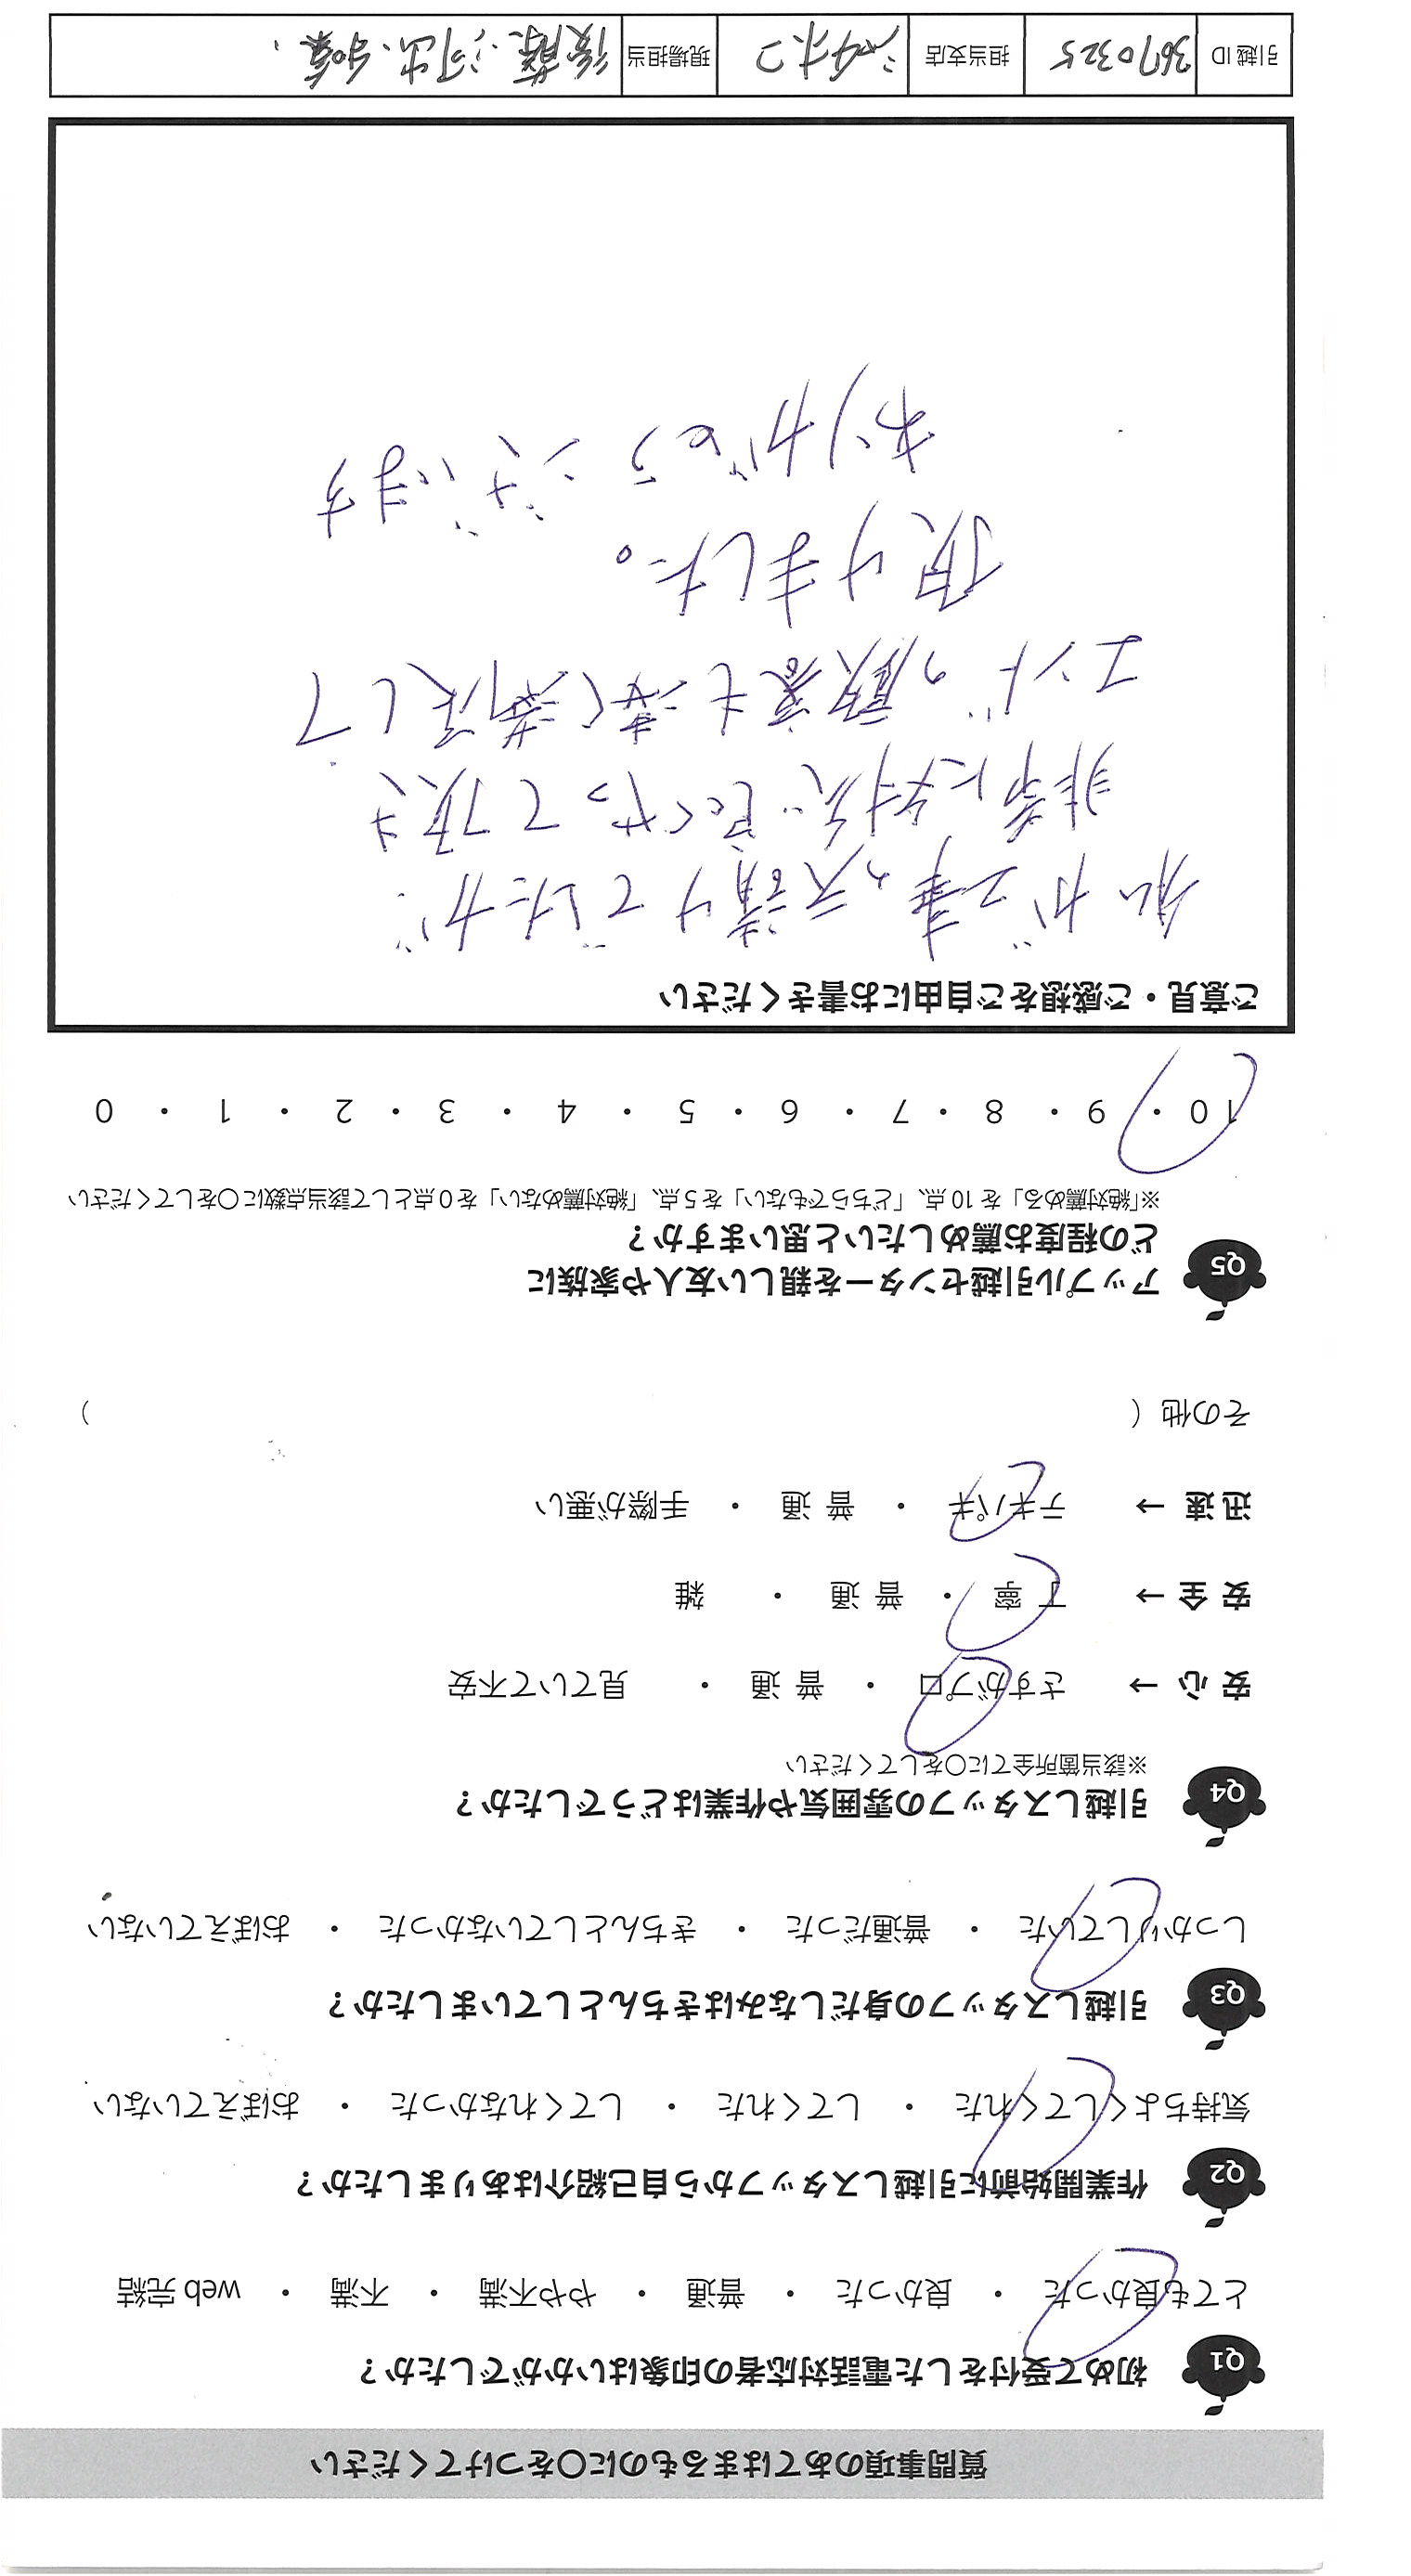 質問事項のあてはまるものに〇をつけてください
Q1 初めて受付をした電話対応者の印象はいかがでしたか？
とても良かった ・ 良かった ・ 普通 ・ やや不満 ・ 不満 ・ web 完結
Q2 作業開始前に引越しスタッフから自己紹介はありましたか？
気持ちよくしてくれた ・ してくれた ・ してくれなかった ・ おぼえていない
Q3 引越しスタッフの身だしなみはきちんとしていましたか？
しっかりしていた ・ 普通だった ・ きちんとしていなかった ・ おぼえていない
Q4 引越しスタッフの雰囲気や作業はどうでしたか？
※該当箇所全てに〇をしてください
安 心 → さすがプロ ・ 普 通 ・ 見ていて不安
安 全 → 丁 寧 ・ 普 通 ・ 雑
迅 速 → テキパキ ・ 普 通 ・ 手際が悪い
その他（ ）
Q5 アップル引越センターを親しい友人や家族に
どの程度お薦めしたいと思いますか？
※「絶対薦める」を 10 点、「どちらでもない」を 5 点、「絶対薦めない」を 0 点として該当点数に〇をしてください
10 ・ 9 ・ 8 ・ 7 ・ 6 ・ 5 ・ 4 ・ 3 ・ 2 ・ 1 ・ 0
ご意見・ご感想をご自由にお書きください
私が工事の元請けでしたが
非常に対応良くやって頂き
エンドの顧客も凄く満足して
頂けました。
ありがとうございます
引越 ID 3670325 担当支店 現場担当 後藤、河出、